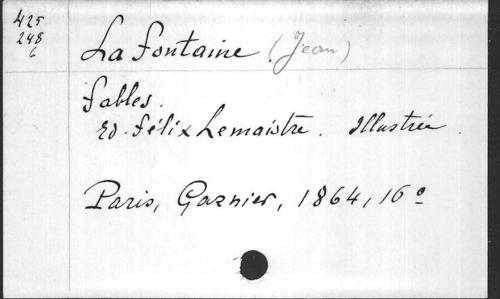 425
248
6
La Fontaine (Jean)
Fables.
Ed. Félix Lemaistre. Illustrée.
Paris, Garnier, 1864, 16°